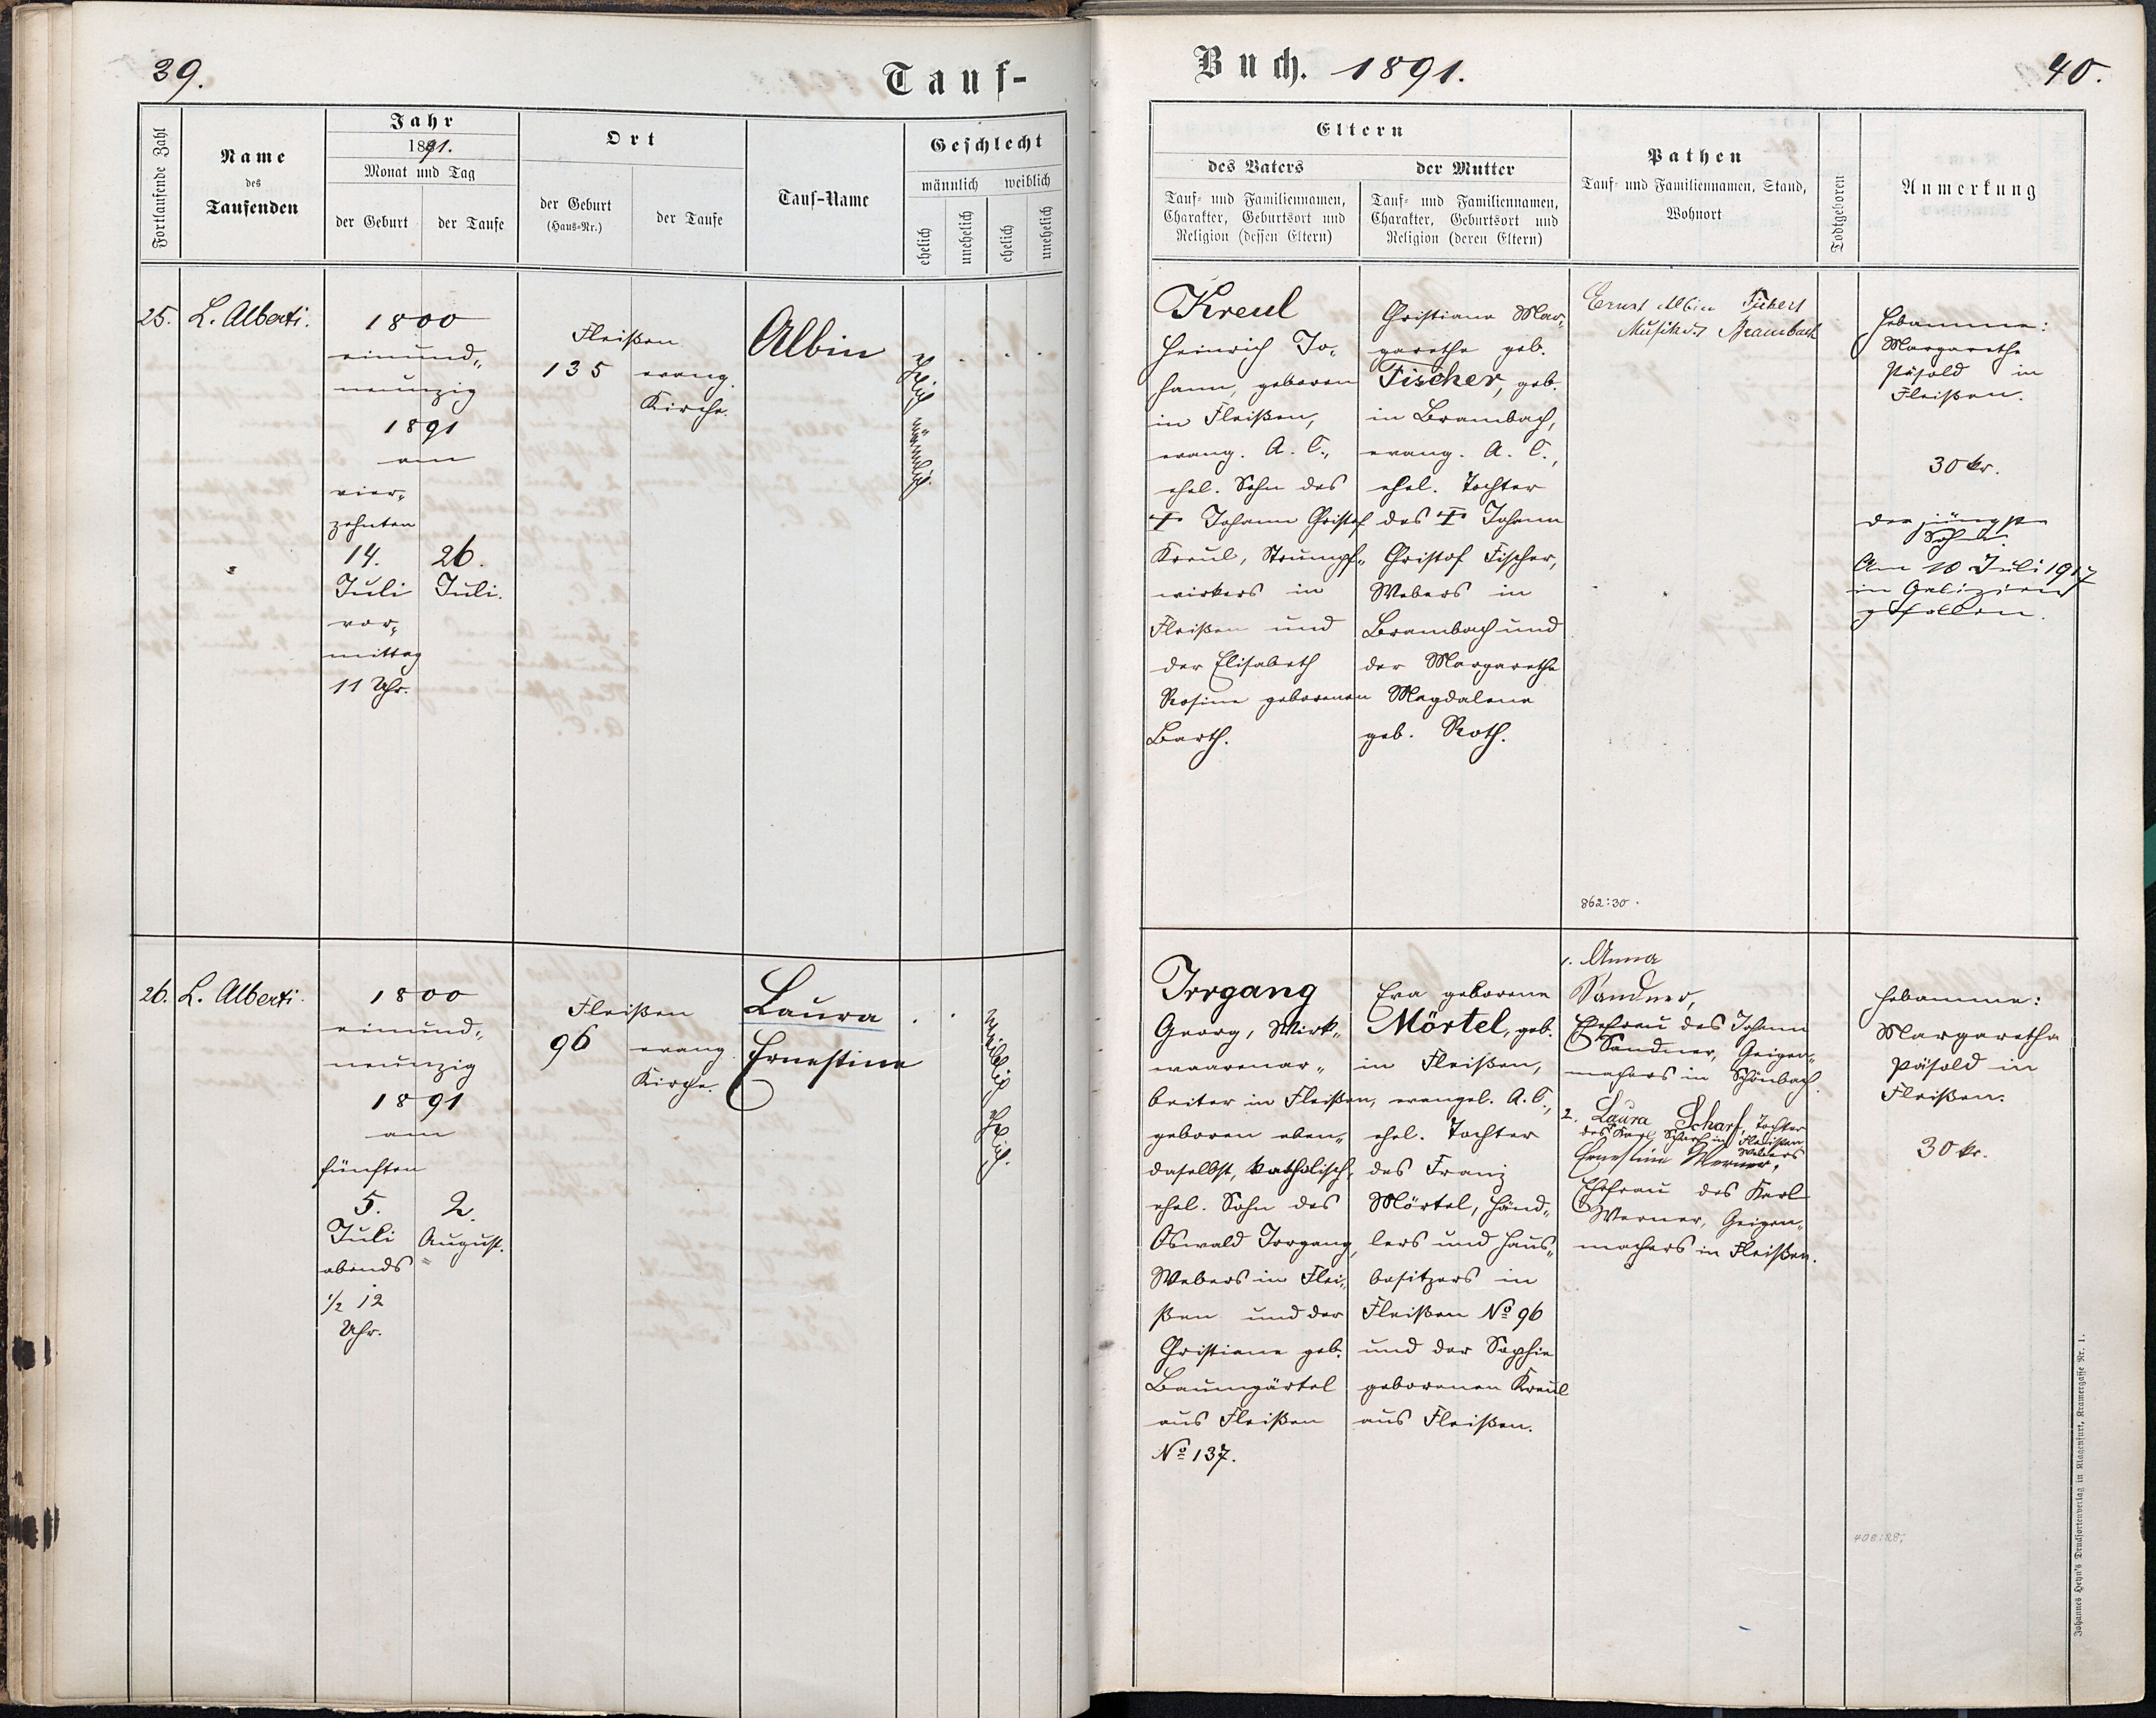 39.
Tauf-
Fortlaufende Zahl
Name
des
Taufenden
Jahr
1891.
Monat und Tag
der Geburt
der Taufe
Ort
der Geburt
(Haus-Nr.)
der Taufe
Tauf-Name
Geschlecht
männlich
weiblich
ehelich
unehelich
ehelich
unehelich
25.
L. Alberti.
1800
einund„
neunzig
1891
am
vier„
zehnten
14.
Juli
vor„
mittag
11 Uhr.
26.
Juli.
Fleißen
135
evang.
Kirche.
Albin
ehelich
männlich.
26.
L. Alberti.
1800
einund„
neunzig
1891
am
fünften
5.
Juli
abends
½ 12
Uhr.
2.
August.
Fleißen
96
evang.
Kirche.
Laura
Ernestine
weiblich
ehelich.
Buch. 1891.
40.
Eltern
des Vaters
Tauf- und Familiennamen,
Charakter, Geburtsort und
Religion (dessen Eltern)
der Mutter
Tauf- und Familiennamen,
Charakter, Geburtsort und
Religion (deren Eltern)
Pathen
Tauf- und Familiennamen, Stand,
Wohnort
Todtgeboren
Anmerkung
Kreul
Heinrich Jo„
hann, geboren
in Fleißen,
evang. A. C.,
ehel. Sohn des
† Johann Christof
Kreul, Strumpf„
wirkers in
Fleißen und
der Elisabeth
Rosine geborenen
Barth.
Christiane Mar„
garethe geb.
Fischer, geb.
in Brambach,
evang. A. C.,
ehel. Tochter
des † Johann
Christof Fischer,
Webers in
Brambach und
der Margarethe
Magdalena
geb. Roth.
Ernst Albin Fickert
Musikus Brambach
862:30.
Hebamme:
Margarethe
Päsold in
Fleißen.
30 kr.
der jüngste
Sohn.
Am 10 Juli 1917
in Galizien
gefallen.
Irrgang
Georg, Wirk„
waarenar„
beiter in Fleißen,
geboren eben„
daselbst, katholisch,
ehel. Sohn des
Oswald Irrgang,
Webers in Flei„
ßen und der
Christiane geb.
Baumgärtel
aus Fleißen
No 137.
Eva geborene
Mörtel, geb.
in Fleißen,
evangel. A. C.,
ehel. Tochter
des Franz
Mörtel, Händ„
lers und Haus„
besitzers in
Fleißen No 96
und der Sophie
geborenen Kreul
aus Fleißen.
1. Anna
Sandner,
Ehefrau des Johann
Sandner, Geigen„
machers in Schönbach.
2. Laura Scharf, Tochter
des Karl Scharf in Fleißen
Webers
Ernestine Werner,
Ehefrau des Karl
Werner, Geigen„
machers in Fleißen.
Hebamme:
Margaretha
Päsold in
Fleißen.
30 kr.
408:28;
Johannes Heyn's Drucksortenverlag in Klagenfurt, Kramergasse Nr. 1.